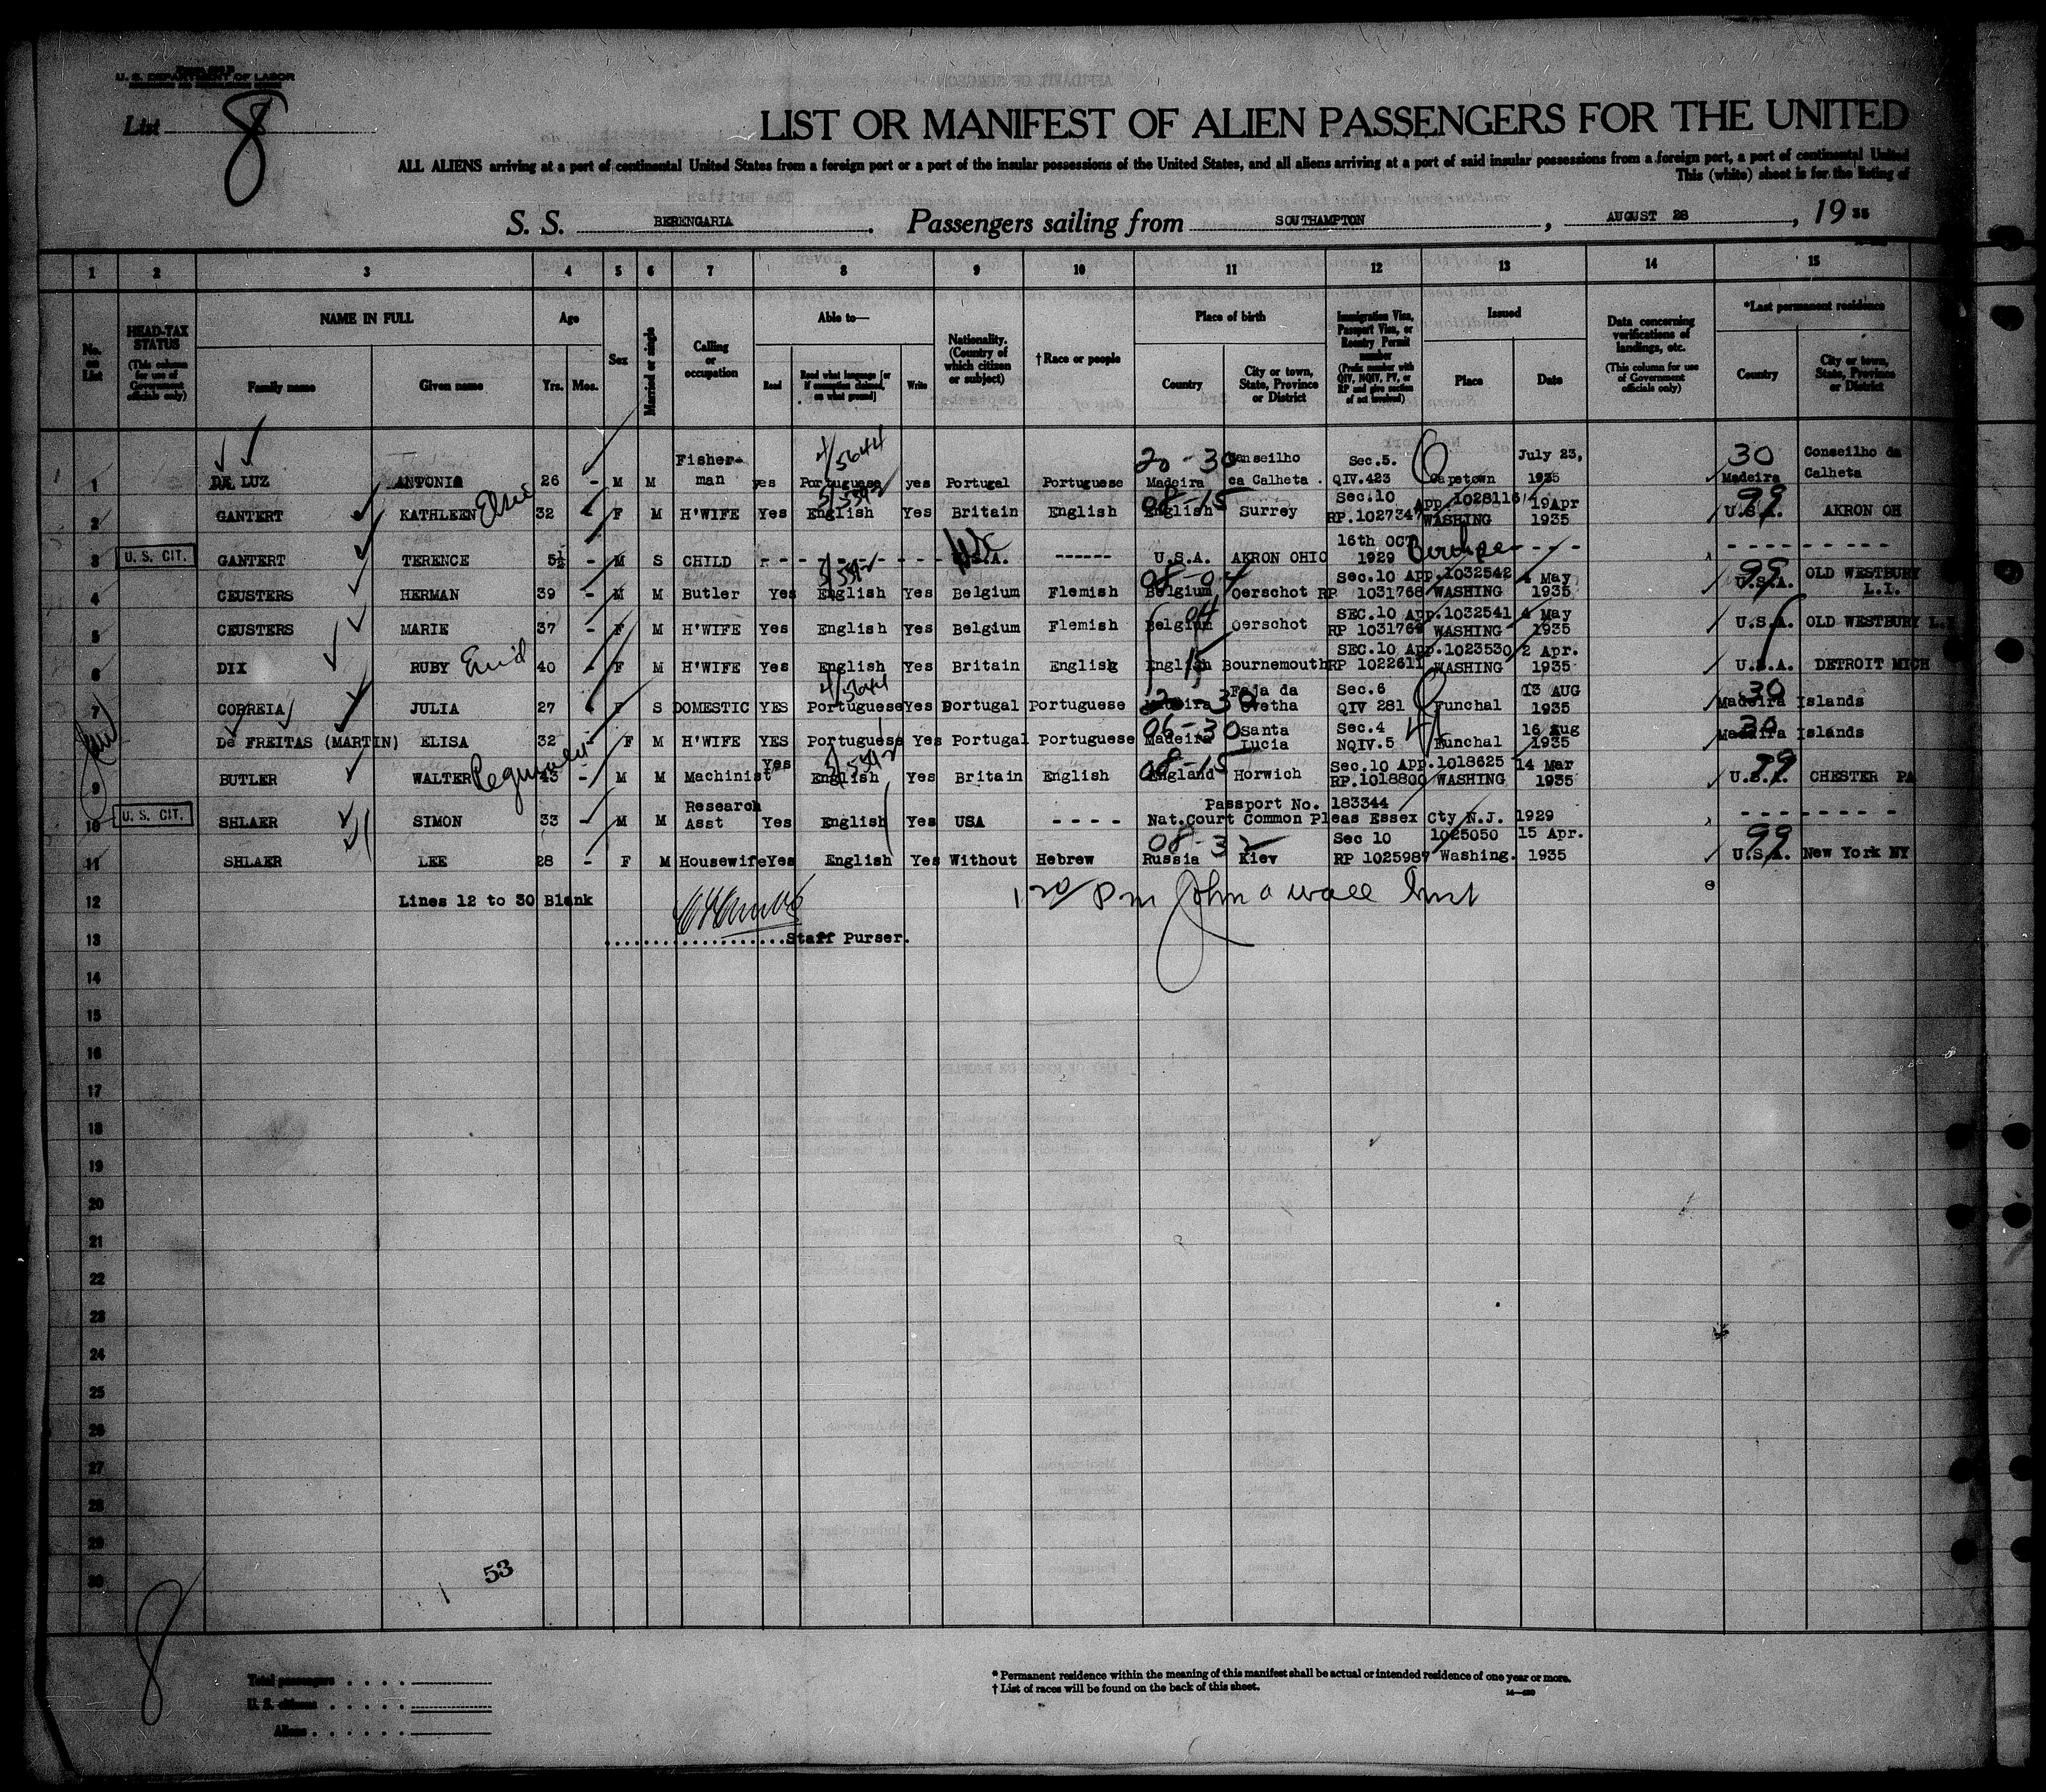 U. S. DEPARTMENT OF LABOR
List 8
LIST OR MANIFEST OF ALIEN PASSENGERS FOR THE UNITED
ALL ALIENS arriving at a port of continental United States from a foreign port or a port of the insular possessions of the United States, and all aliens arriving at a port of said insular possessions from a foreign port, a port of continental United
This (white) sheet is for the listing of
S. S. BERENGARIA. Passengers sailing from SOUTHAMPTON, AUGUST 28, 19 35
1 2 3 4 5 6 7 8 9 10 11 12 13 14 15
No. on List
HEAD-TAX STATUS (This column for use of Government officials only)
NAME IN FULL
Family name Given name
Age
Yrs. Mos.
Sex
Married or single
Calling or occupation
Able to—
Read Read what language [or if exemption claimed, on what ground] Write
Nationality. (Country of which citizen or subject)
† Race or people
Place of birth
Country City or town, State, Province or District
Immigration Visa, Passport Visa, or Reentry Permit number (Prefix number with QIV, NQIV, PV, or RP and give section of act involved)
Issued
Place Date
Data concerning verifications of landings, etc. (This column for use of Government officials only)
*Last permanent residence
Country City or town, State, Province or District
4/5644 20-30 30
1 DE LUZ ANTONIO 26 - M M Fisher-man yes Portuguese yes Portugal Portuguese Madeira Conselho ca Calheta. Sec.5. QIV.423 Capetown July 23, 1935 Madeira Conseilho da Calheta
08-15 99
2 GANTERT KATHLEEN Elsie 32 F M H'WIFE Yes English Yes Britain English English Surrey Sec.10 RP.1027347 App.1028116 WASHING 19Apr 1935 U.S.A. AKRON OH
3 U. S. CIT. GANTERT TERENCE 5½ - M S CHILD U.S.A. ------ U.S.A. AKRON OHIO 16th OCT 1929
08-04 99
4 CEUSTERS HERMAN 39 - M M Butler Yes English Yes Belgium Flemish Belgium Oerschot Sec.10 App.1032542 RP 1031768 WASHING 4 May 1935 U.S.A. OLD WESTBURY L.I.
04
5 CEUSTERS MARIE 37 - F M H'WIFE Yes English Yes Belgium Flemish Belgium Oerschot SEC.10 App.1032541 RP 1031769 WASHING 4 May 1935 U.S.A. OLD WESTBURY L.I
15
6 DIX RUBY Enid 40 - F M H'WIFE Yes English Yes Britain English English Bournemouth SEC.10 App.1023530 RP 1022611 WASHING 2 Apr. 1935 U.S.A. DETROIT MICH
4/5644 20-30 30
7 CORREIA JULIA 27 F S DOMESTIC YES Portuguese Yes Portugal Portuguese Madeira Faja da Ovetha Sec.6 QIV 281 Funchal 13 AUG 1935 Madeira Islands
06-30 30
8 De FREITAS (MARTIN) ELISA 32 - F M H'WIFE YES Portuguese Yes Portugal Portuguese Madeira Santa Lucia Sec.4 NQIV.5 Funchal 16 Aug 1935 Madeira Islands
08-15 99
9 BUTLER WALTER 43 - M M Machinist Yes English Yes Britain English England Horwich Sec.10 APP.1018625 RP.1018800 WASHING 14 Mar 1935 U.S.A. CHESTER PA
10 U. S. CIT. SHLAER SIMON 33 - M M Research Asst Yes English Yes USA - - - - Passport No. 183344 Nat.Court Common Pleas Essex Cty N.J. 1929
08-32 99
11 SHLAER LEE 28 - F M Housewife Yes English Yes Without Hebrew Russia Kiev Sec 10 RP 1025987 1025050 Washing. 15 Apr. 1935 U.S.A. New York NY
12 Lines 12 to 30 Blank
John a wall Inst
13 ....................Staff Purser.
14
15
16
17
18
19
20
21
22
23
24
25
26
27
28
29
30
53
8
Total passengers
U. S. citizens
Aliens
* Permanent residence within the meaning of this manifest shall be actual or intended residence of one year or more.
† List of races will be found on the back of this sheet.